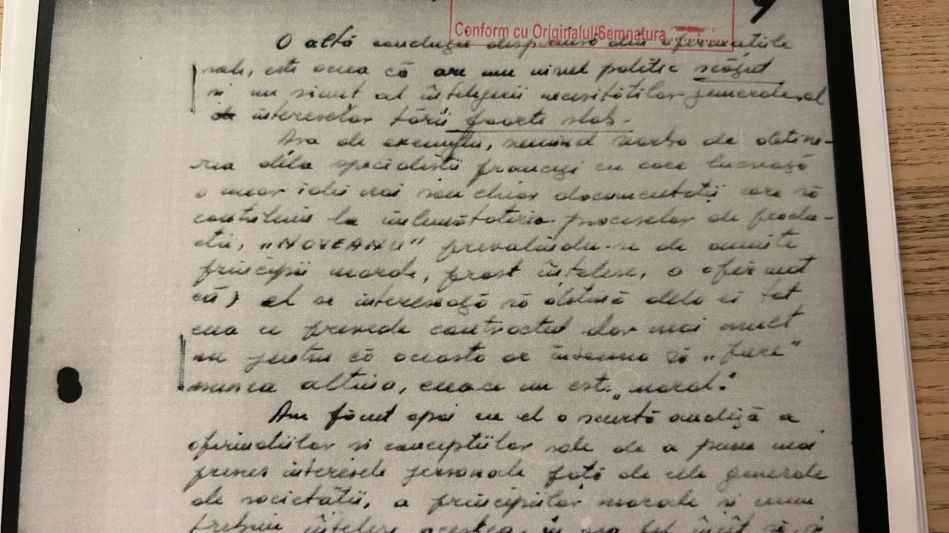 Conform cu Originalul/Semnatura
O altă concluzie desprinsă din afirmațiile
sale, este aceea că are un nivel politic scăzut
și un simț al înțelegerii necesităților generale, al
intereselor țării foarte slab.
Așa de exemplu, venind vorba de obține-
rea dela specialiștii francezi cu care lucrează
a unor idei noi sau chiar documentații care să
contribuie la îmbunătățirea proceselor de produc-
ție, "NOVEANU" prevalîndu-se de anumite
principii morale, prost înțelese, a afirmat
că, el se interesează să obțină dela ei tot
ceea ce prevede contractul dar mai mult
nu pentru că aceasta ar însemna să "fure"
munca altuia, ceea ce nu este "moral".
Am făcut apoi cu el o scurtă analiză a
afirmațiilor și concepțiilor sale de a pune mai
presus interesele personale față de cele generale
ale societății, a principiilor morale și cum
trebuie înțelese acestea, în așa fel încît să-și